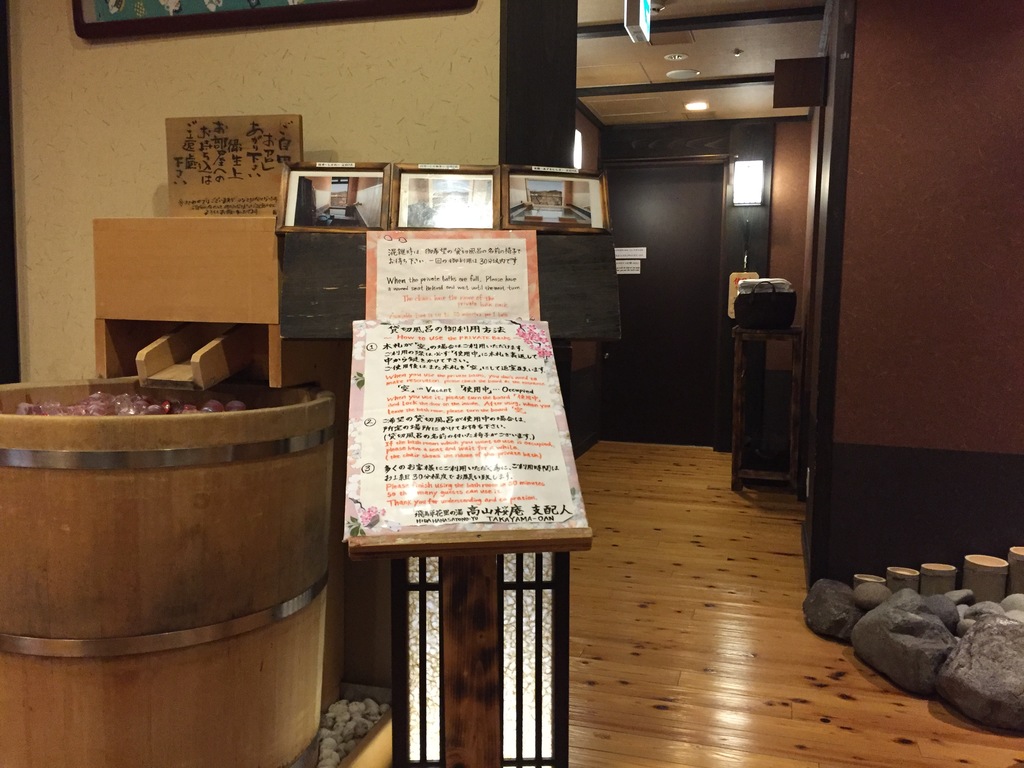 ご自由に
お召し
あがり下さい
衛生上
お部屋への
お持ち込みは
ご遠慮
下さい
混雑時は、御希望の貸切風呂の名前の椅子で
お待ち下さい 一回の御利用は30分以内です
When the private baths are full, Please have
a seat and wait until the next turn.
The chairs have the name of the
private bath
貸切風呂の御利用方法
How to use the PRIVATE Baths
① 木札が"空"の場合はご利用いただけます。
ご利用の際は必ず"使用中"に木札を裏返して
中から錠をかけて下さい。
ご使用後はまた木札を"空"にして退室願います。
When you use the private baths, you don't need to
make reservation. please check the board at an entrance
"空"…Vacant "使用中"…Occupied
When you use it, please turn the board "使用中",
and lock the door in the inside. After using, when you
leave the bath room, please turn the board "空".
② ご希望の貸切風呂が使用中の場合は、
所定の場所にかけてお待ち下さい。
(貸切風呂の名前の付いた椅子がございます。)
If the bath room which you want to use is occupied,
please have a seat and wait for a while.
(the chair shows its name of the private bath)
③ 多くのお客様にご利用いただく為に、ご利用時間は
お1組30分程度でお願い致します。
Please finish using the bath room in 30 minutes
so that many guests can use it.
Thank you for understanding and cooperation.
飛騨花里の湯 高山桜庵 支配人
HIDA HANASATONO-YU TAKAYAMA-OAN